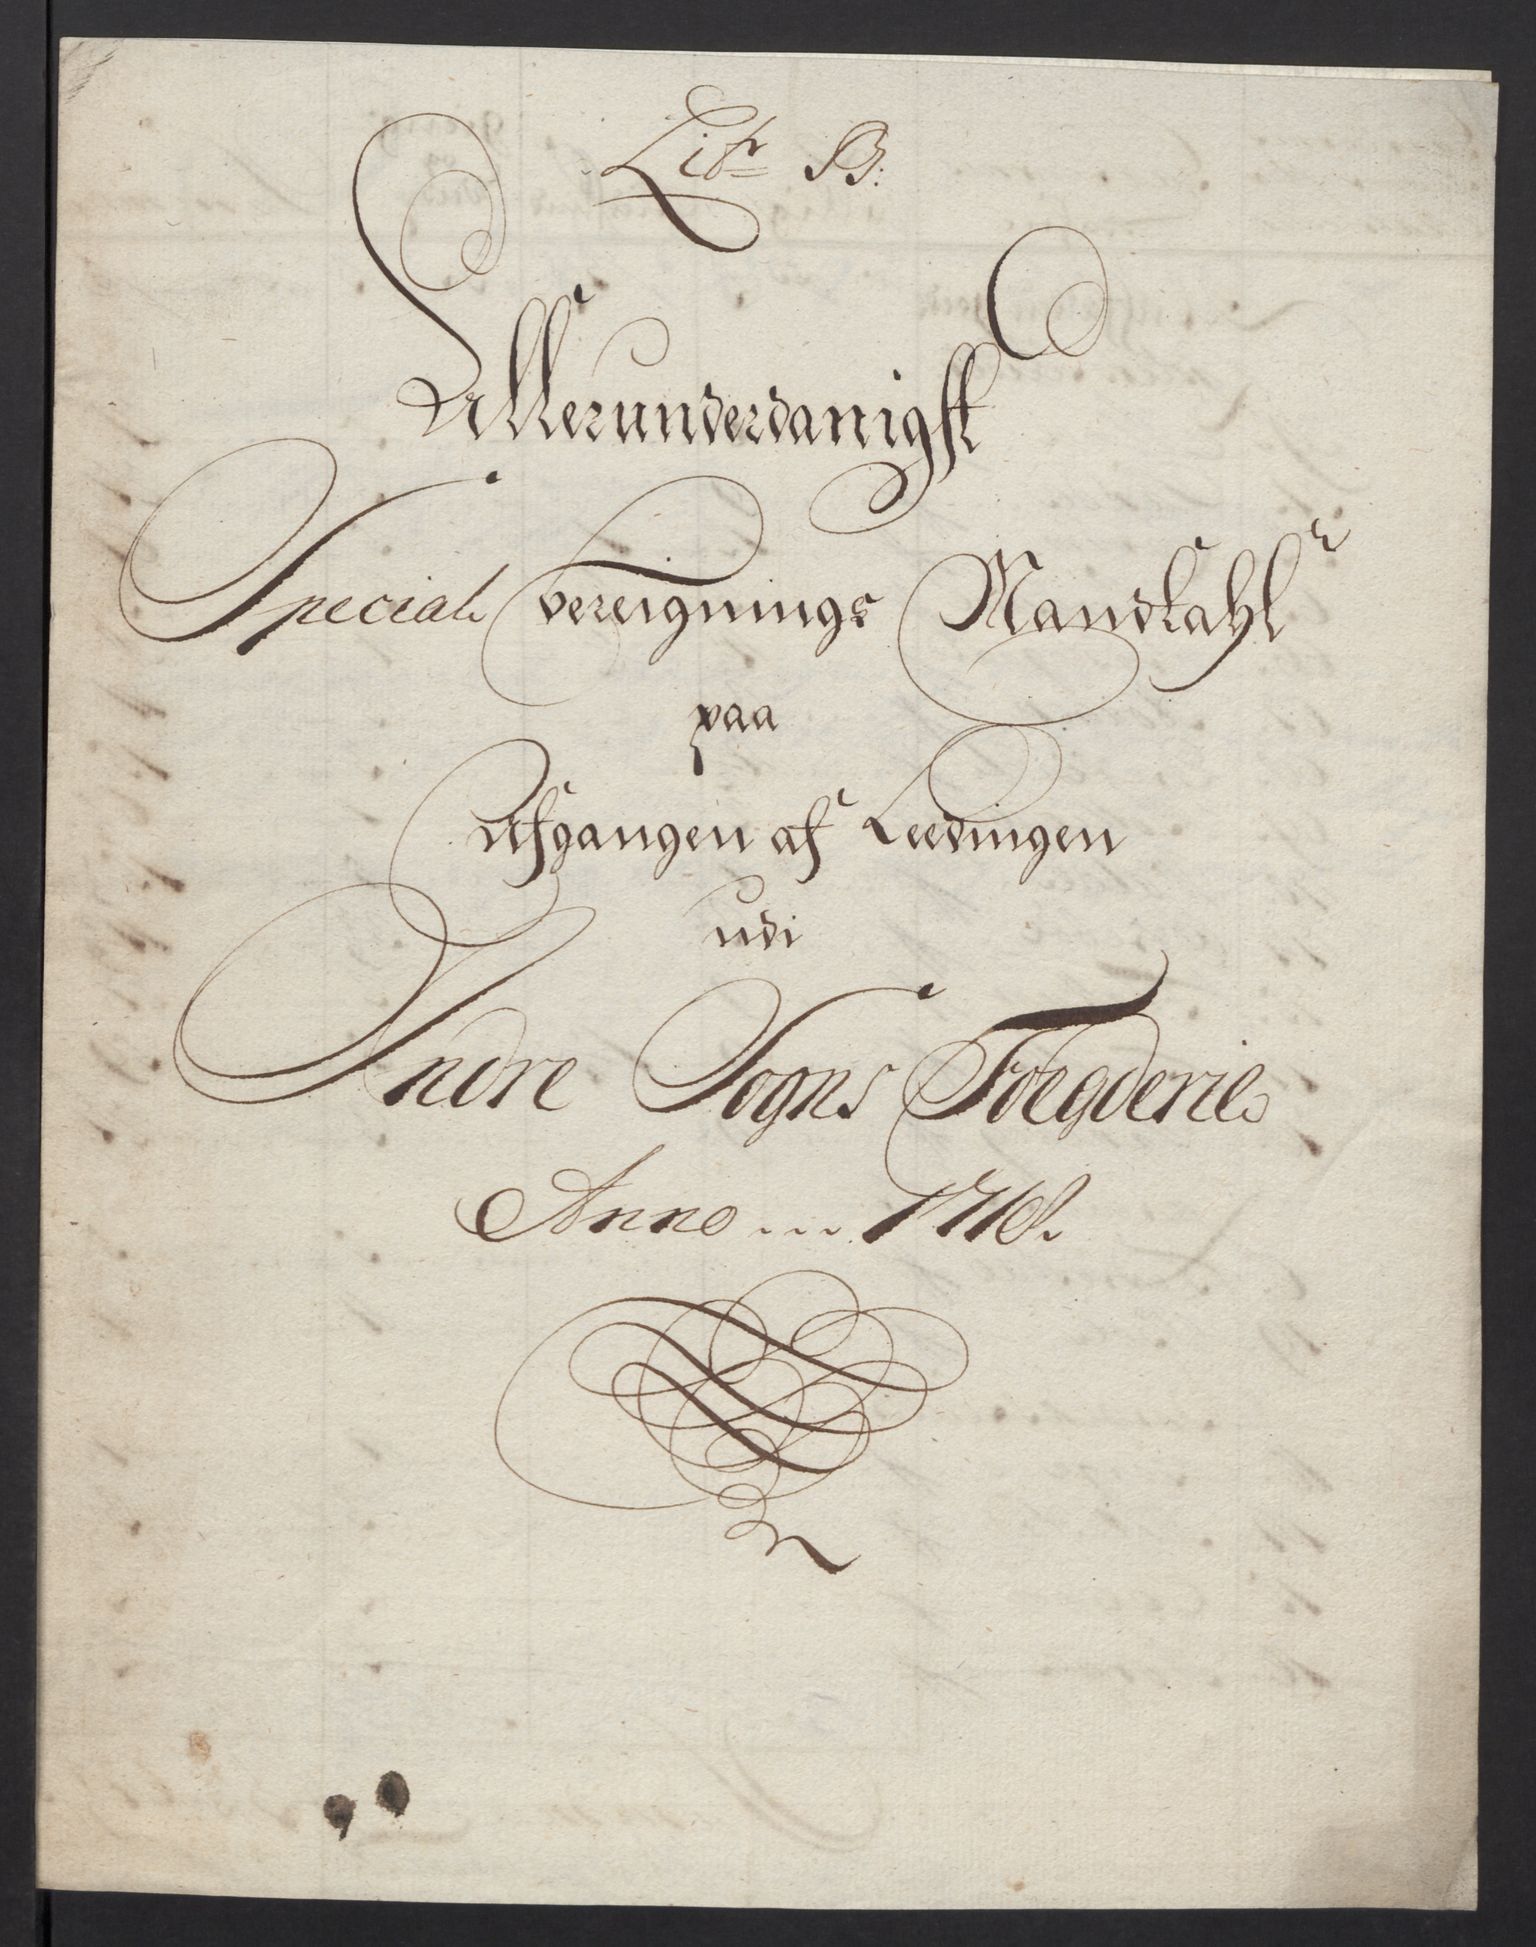 Litr B:
Allerunderdanigst
Special vereignings Mandtahl
paa
Afgangen af Leedingen
udi
Indre Sogns Foegderie
Anno ... 1716.